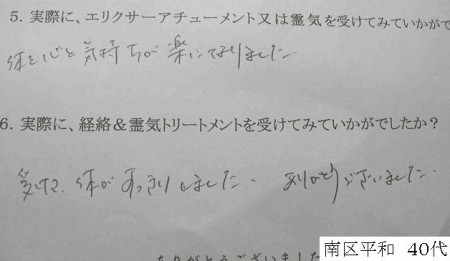 5. 実際に、エリクサーアチューメント又は霊気を受けてみていかがで
体と心と気持ちが楽になりました
6. 実際に、経絡&霊気トリートメントを受けてみていかがでしたか?
受けて、体がすっきりしました。ありがとうございました。
ありがとうございました
南区平和 40代